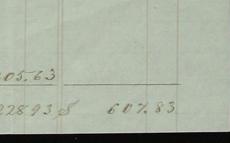 05.63
22893 $ 607.83